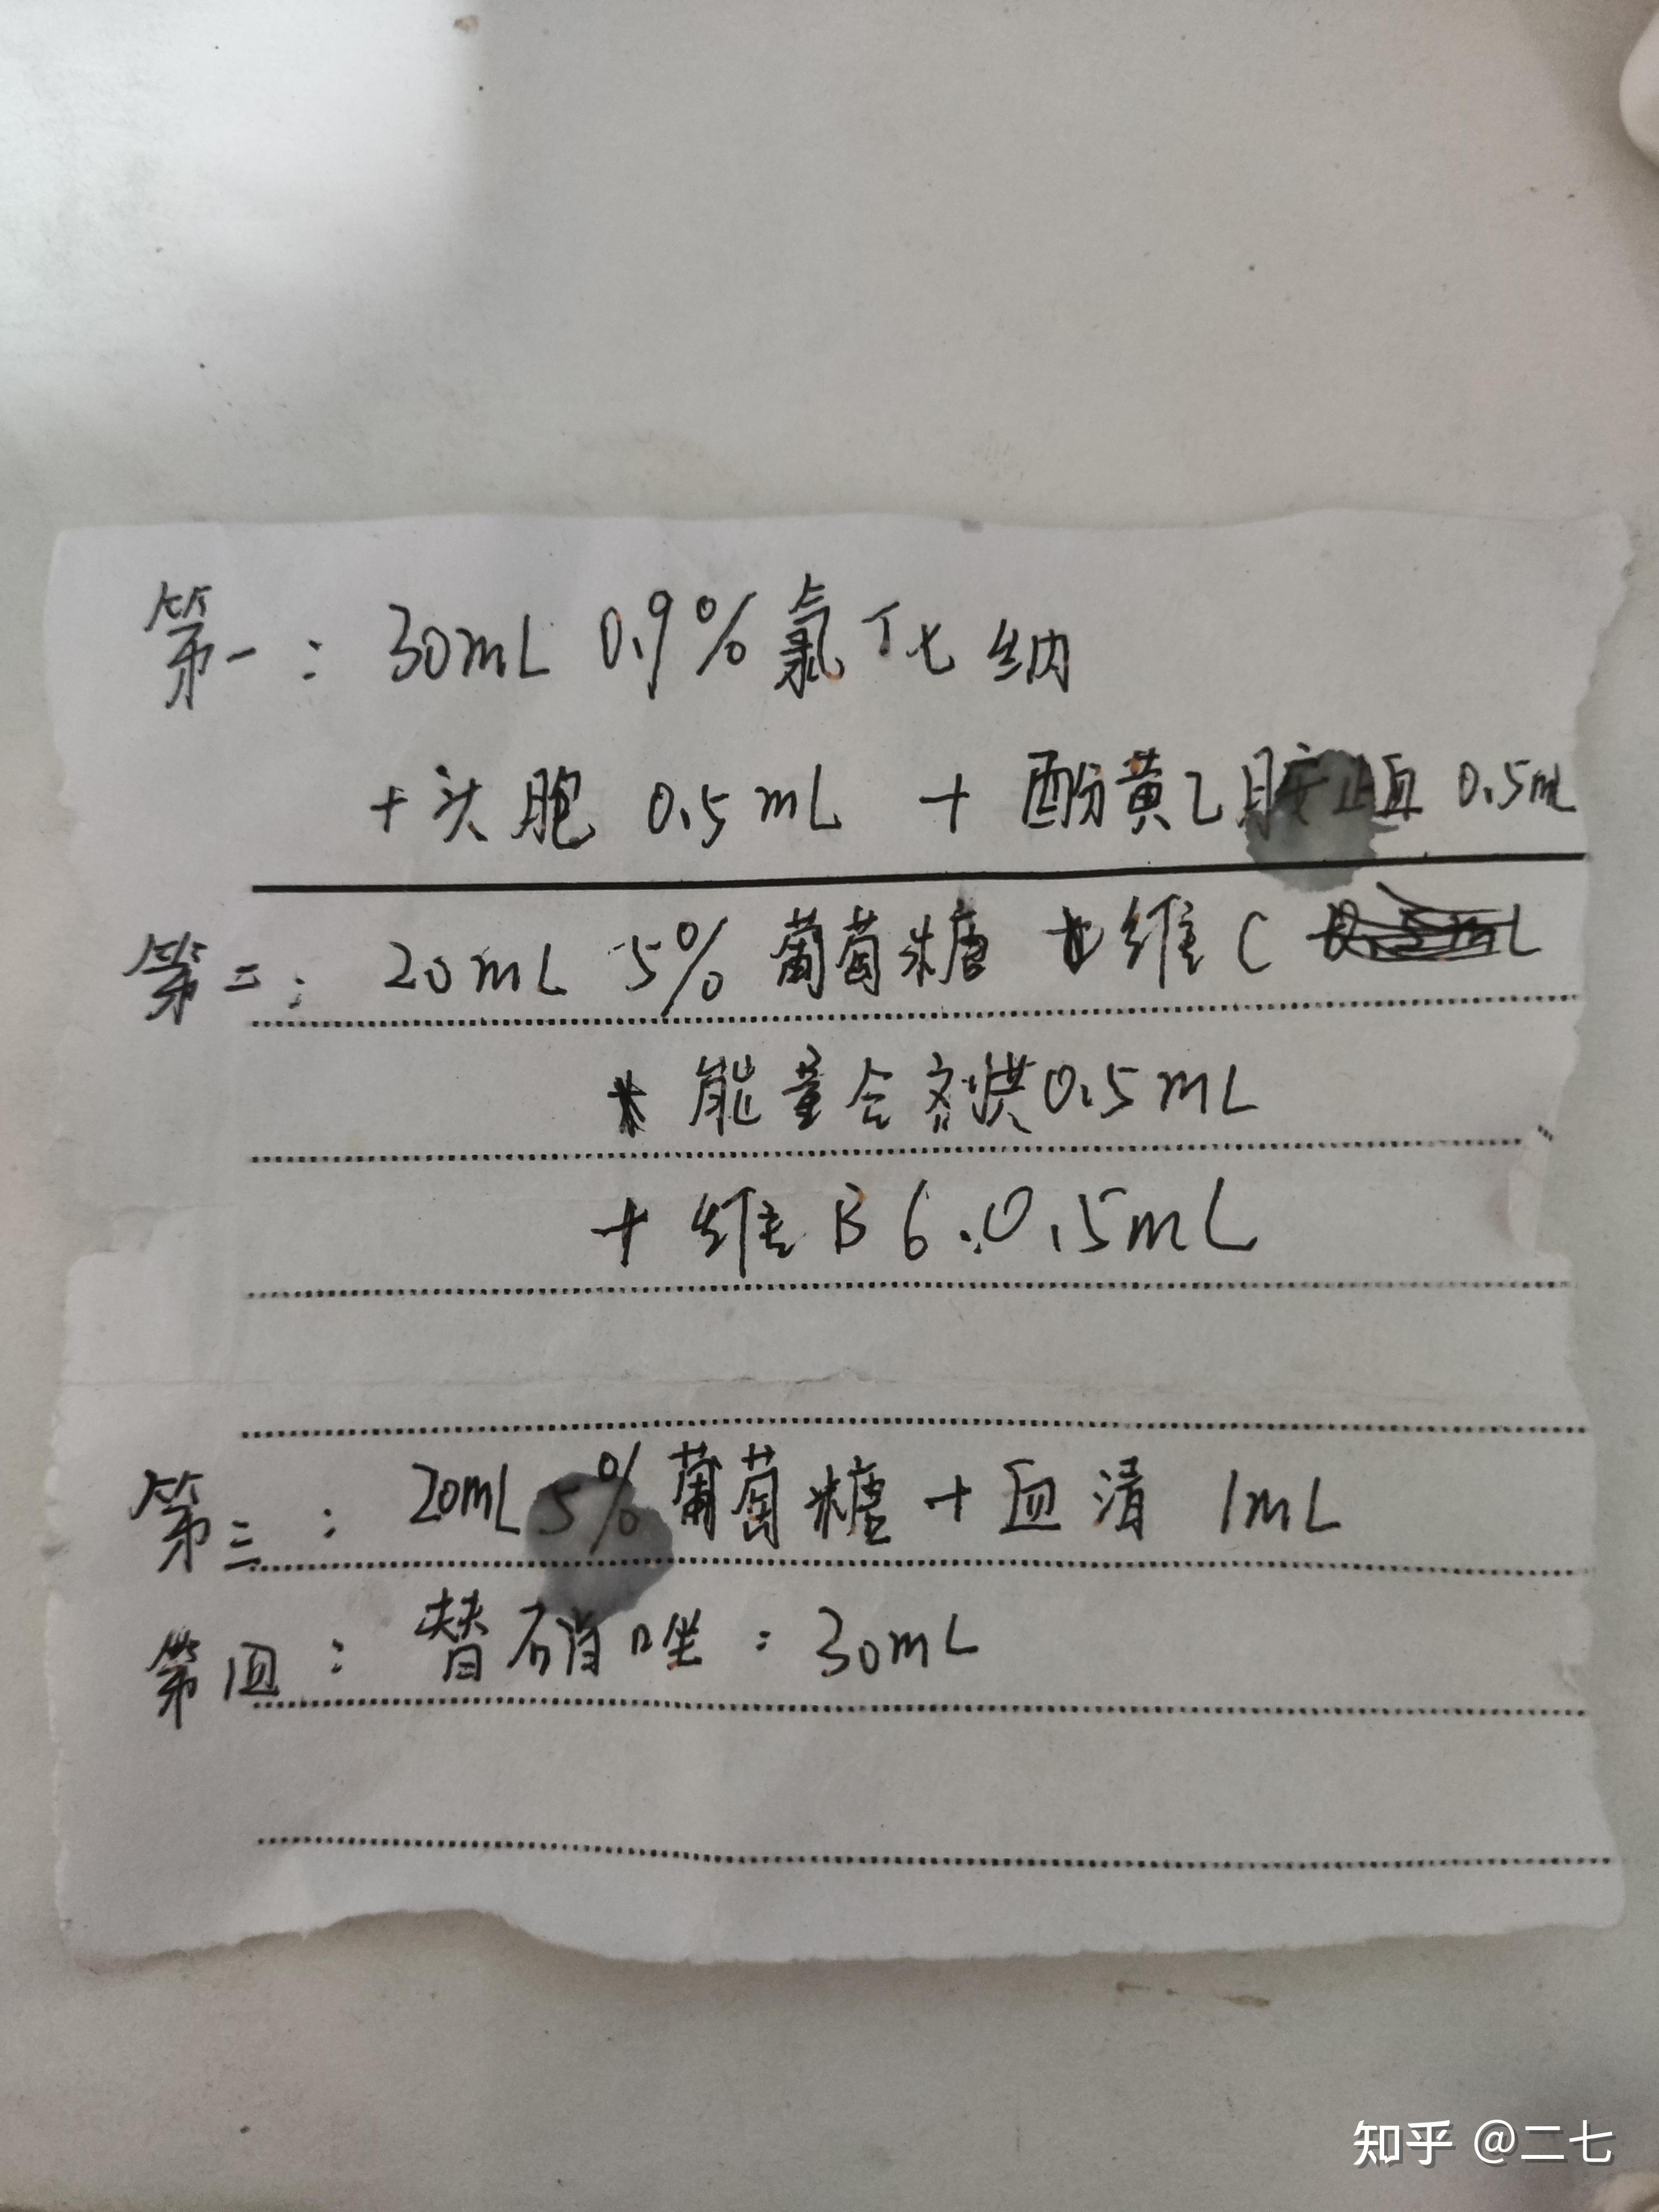 第一：30mL 0.9%氯化纳
+头胞 0.5mL + 酚黄乙胺止血 0.5mL
第二：20mL 5% 葡萄糖 +维C
能量合剂共0.5mL
+维B6.0.5mL
第三：20mL 5%葡萄糖+血清 1mL
第四：替硝唑：30mL
知乎 @二七